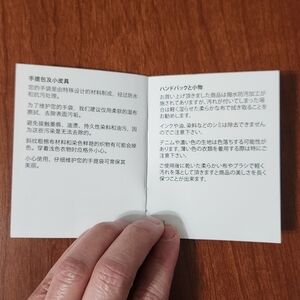 手提包及小皮具
您的手袋是由特殊设计的材料制成，经过防水
和抗污处理。
为了维护您的手袋，我们建议仅用柔软的湿布
擦拭，去除表面污垢。
避免接触墨痕、油渍、持久性染料和油污，因
为这些污染是无法去除的。
斜纹粗棉布材料和染色鲜艳的织物有可能会掉
色。穿着浅色衣物时应格外小心。
小心使用，仔细维护您的手提袋可常保其
美丽。
ハンドバックと小物
お買い上げ頂きました商品は撥水防汚加工が
施されてありますが、汚れが付いてしまった場
合は軽く湿らせた柔らかな布で拭き取ることを
お勧めします。
インクや油、染料などのシミは除去できません
のでご注意下さい。
デニムや濃い色の生地は色落ちする可能性が
あります。薄い色の衣類を着用する際は特にご
注意下さい。
ご使用後に乾いた柔らかい布やブラシで軽く
汚れを落として頂きますと商品の美しさを長く
保つことが出来ます。